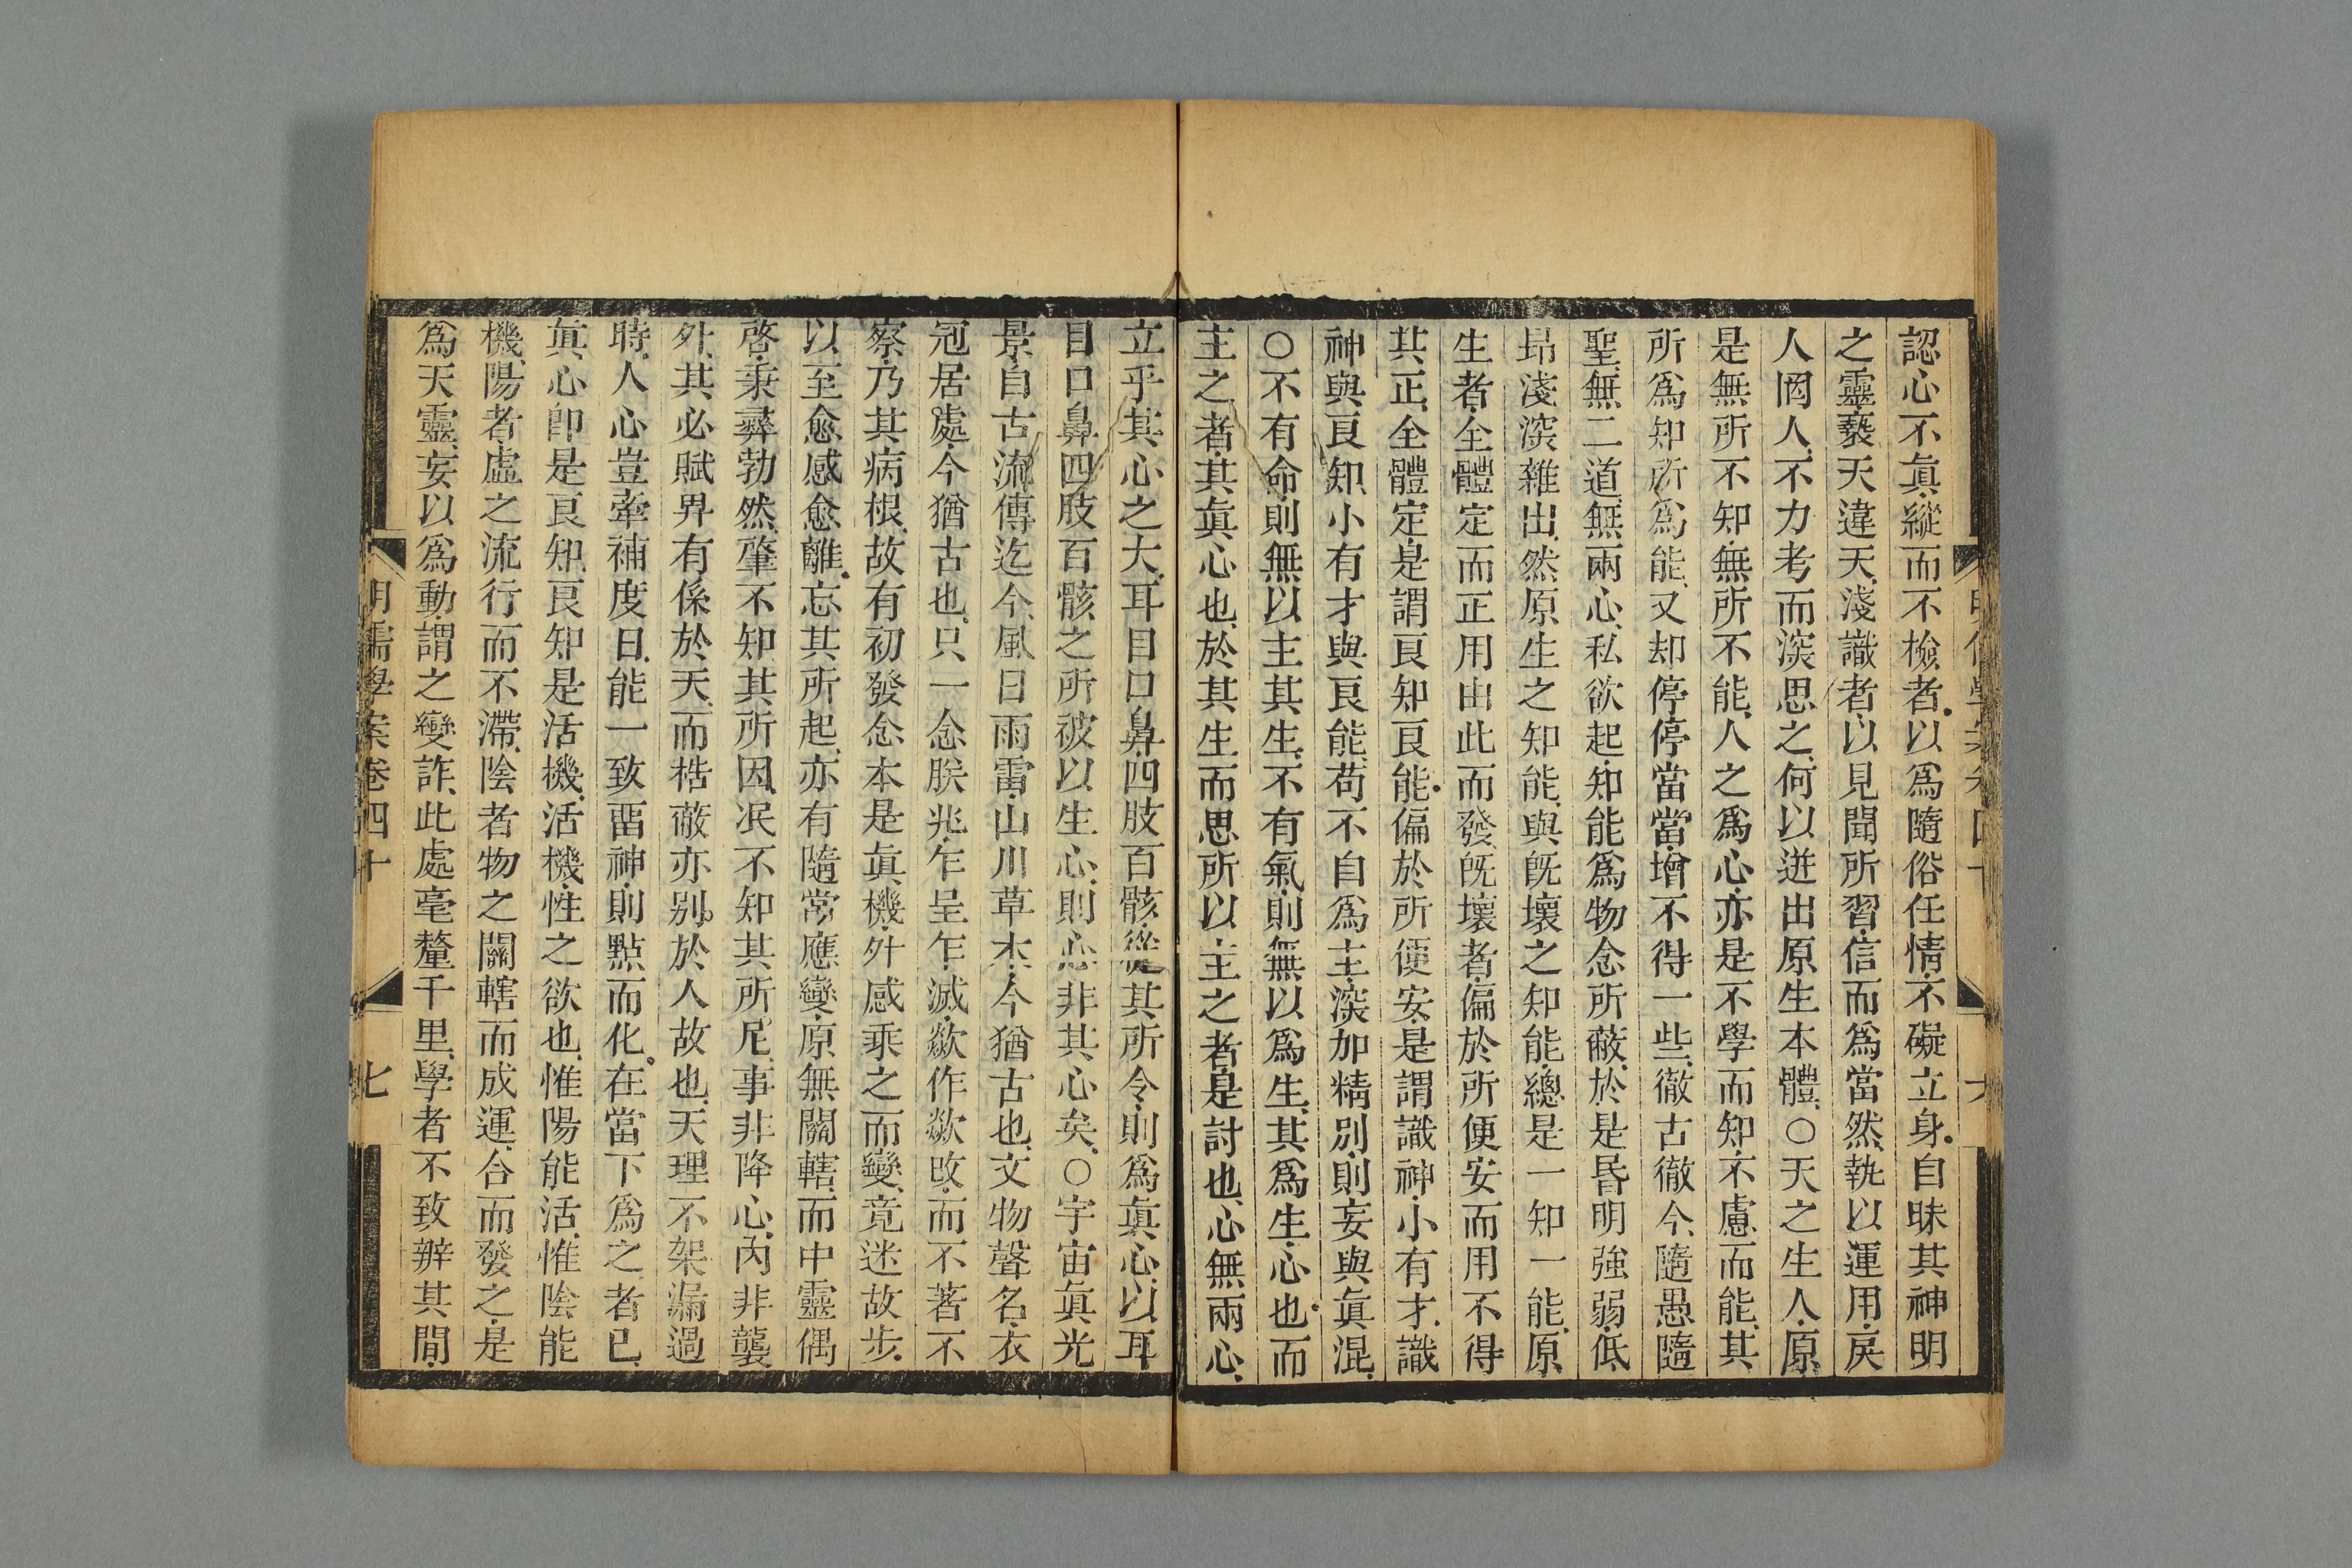 認心不眞縱而不檢者以爲隨俗任情不礙立身自昧其神明
之靈褻天違天淺識者以見聞所習信而爲當然執以運用戾
人罔人不力考而深思之何以迸出原生本體○天之生人原
是無所不知無所不能人之爲心亦是不學而知不慮而能其
所爲知所爲能又却停停當當增不得一些徹古徹今隨愚隨
聖無二道無兩心私欲起知能爲物念所蔽於是昏明強弱低
昻淺深雜出然原生之知能與旣壞之知能總是一知一能原
生者全體定而正用由此而發旣壞者偏於所便安而用不得
其正全體定是謂良知良能偏於所便安是謂識神小有才識
神與良知小有才與良能苟不自爲主深加精別則妄與眞混
○不有命則無以主其生不有氣則無以爲生其爲生心也而
主之者其眞心也於其生而思所以主之者是討也心無兩心
立乎其心之大耳目口鼻四肢百骸從其所令則爲眞心以耳
目口鼻四肢百骸之所被以生心則心非其心矣○宇宙眞光
景自古流傳迄今風日雨雷山川草木今猶古也文物聲名衣
冠居處今猶古也只一念朕兆乍呈乍滅歘作歘改而不著不
察乃其病根故有初發念本是眞機外感乘之而變竟迷故步
以至愈感愈離忘其所起亦有隨常應變原無關轄而中靈偶
啓秉彝勃然肇不知其所因泯不知其所尼事非降心內非襲
外其必賦畀有係於天而梏蔽亦別於人故也天理不架漏過
時人心豈牽補度日能一致畱神則點而化在當下爲之者已
眞心卽是良知良知是活機活機性之欲也惟陽能活惟陰能
機陽者虛之流行而不滯陰者物之關轄而成運合而發之是
爲天靈妄以爲動謂之變詐此處毫釐千里學者不致辨其間
明儒學案卷四十
七